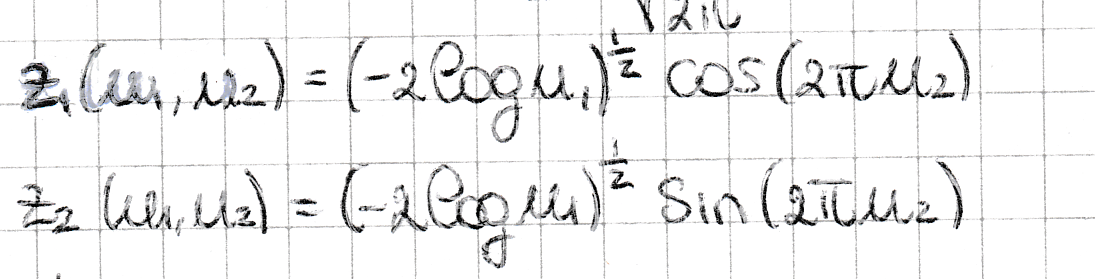 √2π
z₁(u₁, u₂) = (-2 log u₁)^½ cos(2πu₂)
z₂(u₁, u₂) = (-2 log u₁)^½ sin(2πu₂)